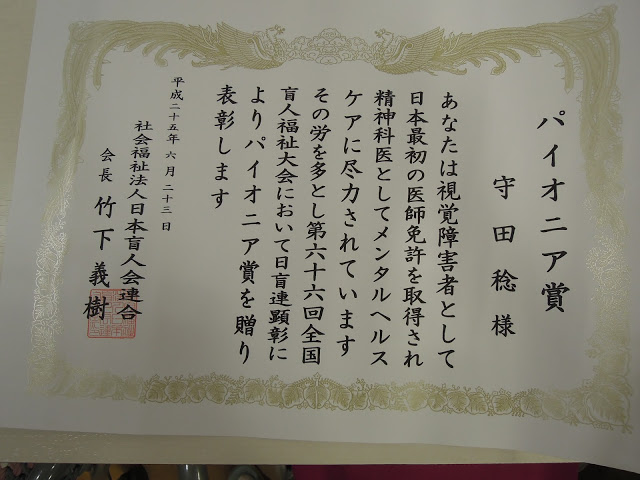 パイオニア賞
守田稔様
あなたは視覚障害者として
日本最初の医師免許を取得され
精神科医としてメンタルヘルス
ケアに尽力されています
その労を多とし第六十六回全国
盲人福祉大会において日盲連顕彰に
よりパイオニア賞を贈り
表彰します
平成二十五年六月二十三日
社会福祉法人日本盲人会連合
会長 竹下義樹